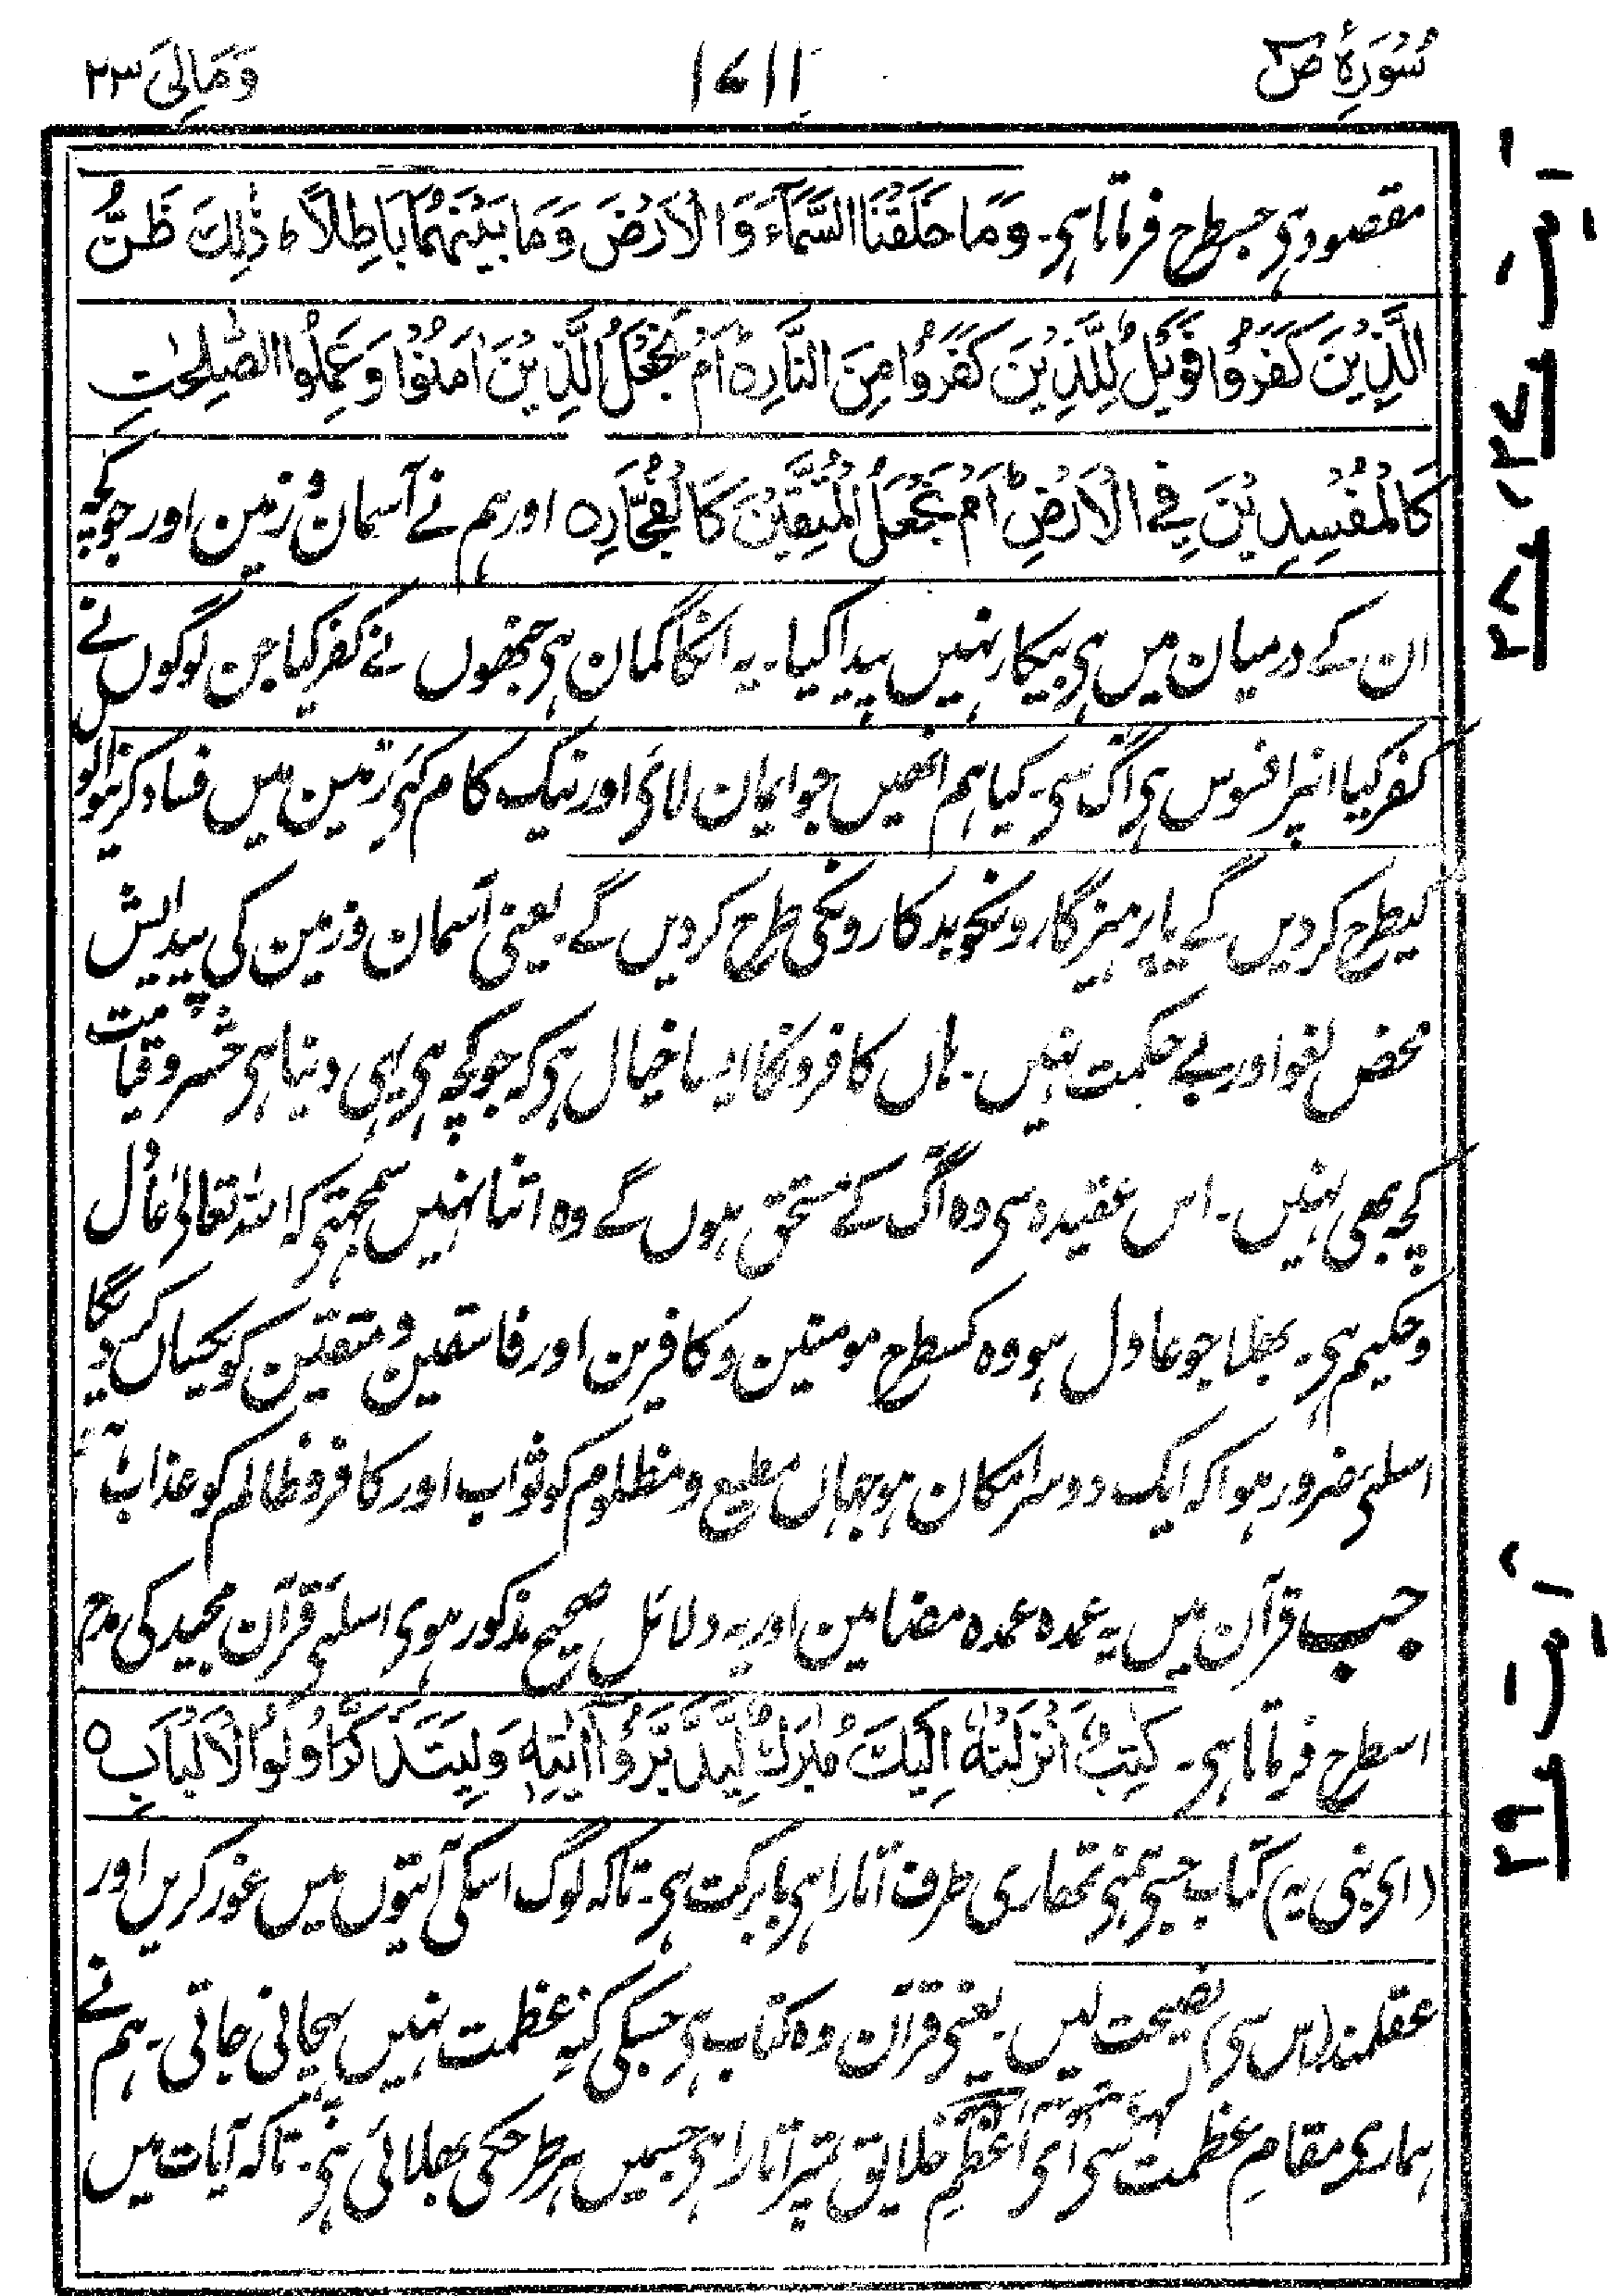 سُوْرَةُ ص
۱۷۱۱
وَمَالِیَ ۲۳
مقصود ہی جسطرح فرماتا ہی۔ وَمَا خَلَقْنَا السَّمَآءَ وَالْاَرْضَ وَمَا بَيْنَهُمَا بَاطِلًا ؕ ذٰلِكَ ظَنُّ
الَّذِيْنَ كَفَرُوْا فَوَيْلٌ لِّلَّذِيْنَ كَفَرُوْا مِنَ النَّارِ ہ اَمْ نَجْعَلُ الَّذِيْنَ اٰمَنُوْا وَعَمِلُوا الصّٰلِحٰتِ
كَالْمُفْسِدِيْنَ فِی الْاَرْضِ اَمْ نَجْعَلُ الْمُتَّقِيْنَ كَالْفُجَّارِ ہ اور ہم نے آسمان و زمین اور جو کچھ
ان کے درمیان میں ہی بیکار نہیں پیدا کیا۔ یہ انکا گمان ہی جنھوں نے کفر کیا جن لوگوں نے
کفر کیا انپر افسوس ہی آگ سی۔ کیا ہم انھیں جو ایمان لائی اور نیک کام کئی زمین میں فساد کرنیوالوں
کیطرح کردیں گے یا پرہیزگارونکو بدکارونکی طرح کردیں گے۔ یعنی آسمان و زمین کی پیدایش
محض لغو اور بے حکمت نہیں۔ ہاں کافرونکا ایسا خیال ہی کہ جو کچھ ہی یہی دنیا ہی حشر و قیامت
کچھ بھی نہیں۔ اس عقیدہ سی وہ آگ کے مستحق ہوں گے وہ اتنا نہیں سمجھتی کہ اللہ تعالیٰ عادل
و حکیم ہی۔ بھلا جو عادل ہو وہ کسطرح مومنین و کافرین اور فاسقین و متقین کو یکساں کردیگا
اسلئی ضرور ہوا کہ ایک دوسرا مکان ہو جہاں مطیع و مظلوم کو ثواب اور کافر و ظالم کو عذاب
جب قرآن میں یہ عمدہ عمدہ مضامین اور یہ دلائل صحیح مذکور ہوی اسلئی قرآن مجید کی مدح
اسطرح فرماتا ہی۔ كِتٰبٌ اَنْزَلْنٰهُ اِلَيْكَ مُبٰرَكٌ لِّيَدَّبَّرُوْٓا اٰيٰتِهٖ وَلِيَتَذَكَّرَ اُولُوا الْاَلْبَابِ ہ
(ای نبی یہ) کتاب جسی ہمنی تمھاری طرف اتارا ہی بابرکت ہی۔ تاکہ لوگ اسکی آیتوں میں غور کریں اور
عقلمند (اس سی) نصیحت لیں۔ یعنی قرآن وہ کتاب ہی جسکی کنہِ عظمت نہیں پہچانی جاتی۔ ہم نے
ہماری مقامِ عظمت سی ای اعظمِ خلایق تمپر اتارا ہی جسمیں ہر طرحکی بھلائی ہی۔ تاکہ آیات میں
۲۸
۲۹